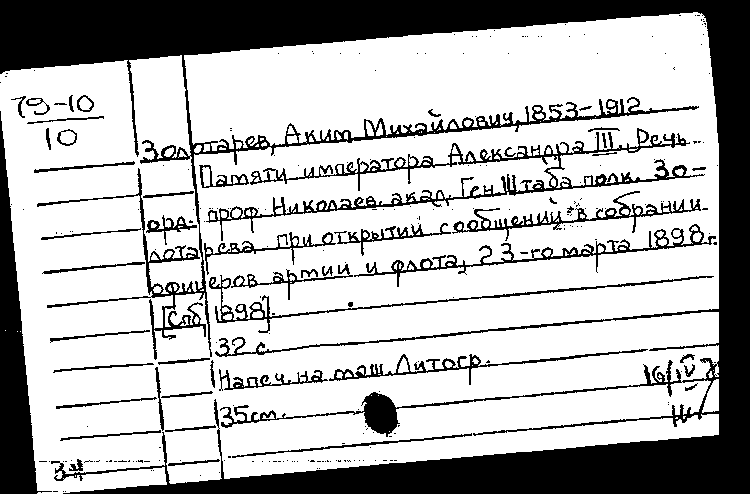 79-10
10
Золотарев, Аким Михайлович, 1853-1912.
Памяти императора Александра III. Речь
орд. проф. Николаев. акад. Ген Штаба полк. Зо-
лотарева при открытии сообщений в собрании
офицеров армии и флота, 23-го марта 1898г.
[Спб 1898].
32 с.
Напеч. на маш. Литогр.
35см.
16/IV